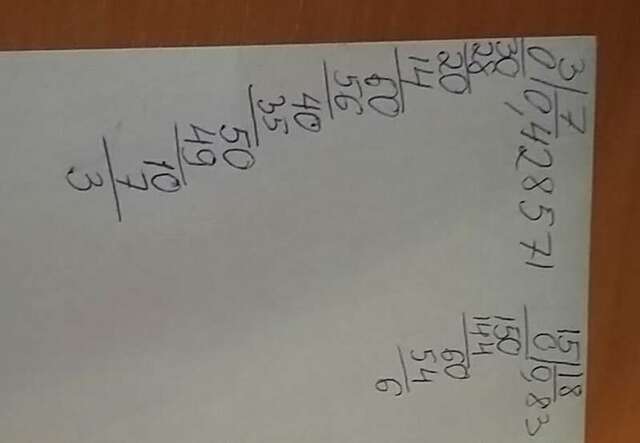 3|7
0|0,428571
30
28
20
14
60
56
40
35
50
49
10
7
3
15|18
0|0,83
150
144
60
54
6